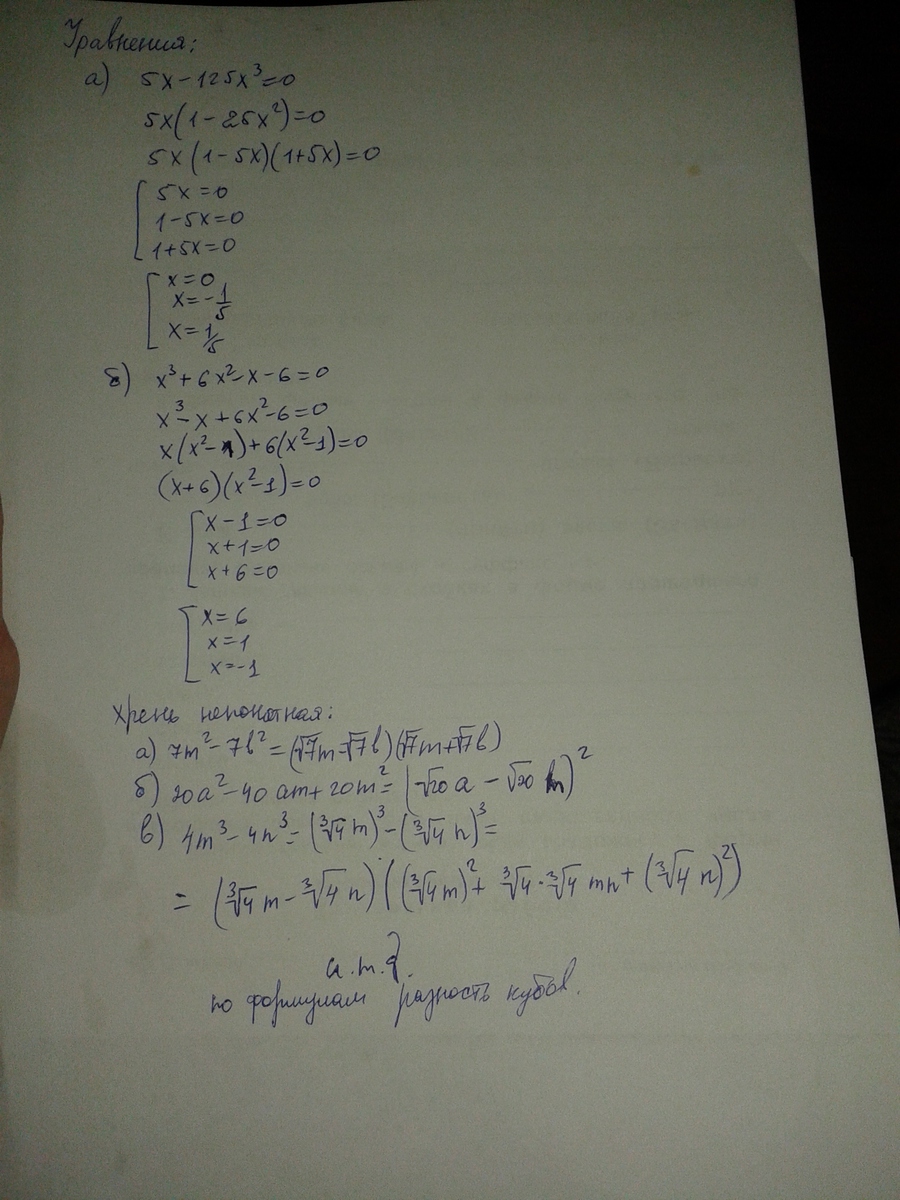 Уравнения:
а) 5x-125x³=0
5x(1-25x²)=0
5x(1-5x)(1+5x)=0
5x=0
1-5x=0
1+5x=0
x=0
x=-1/5
x=1/5
б) x³+6x²-x-6=0
x³-x+6x²-6=0
x(x²-1)+6(x²-1)=0
(x+6)(x²-1)=0
x-1=0
x+1=0
x+6=0
x=6
x=1
x=-1
Хрень непонятная:
а) 7m²-7b²=(√7m-√7b)(√7m+√7b)
б) 20a²-40am+20m²=(√20a-√20m)²
в) 4m³-4n³=(∛4m)³-(∛4n)³=
=(∛4m-∛4n)((∛4m)²+∛4·∛4mn+(∛4n)²)
и.т.д.
по формулам разность кубов.